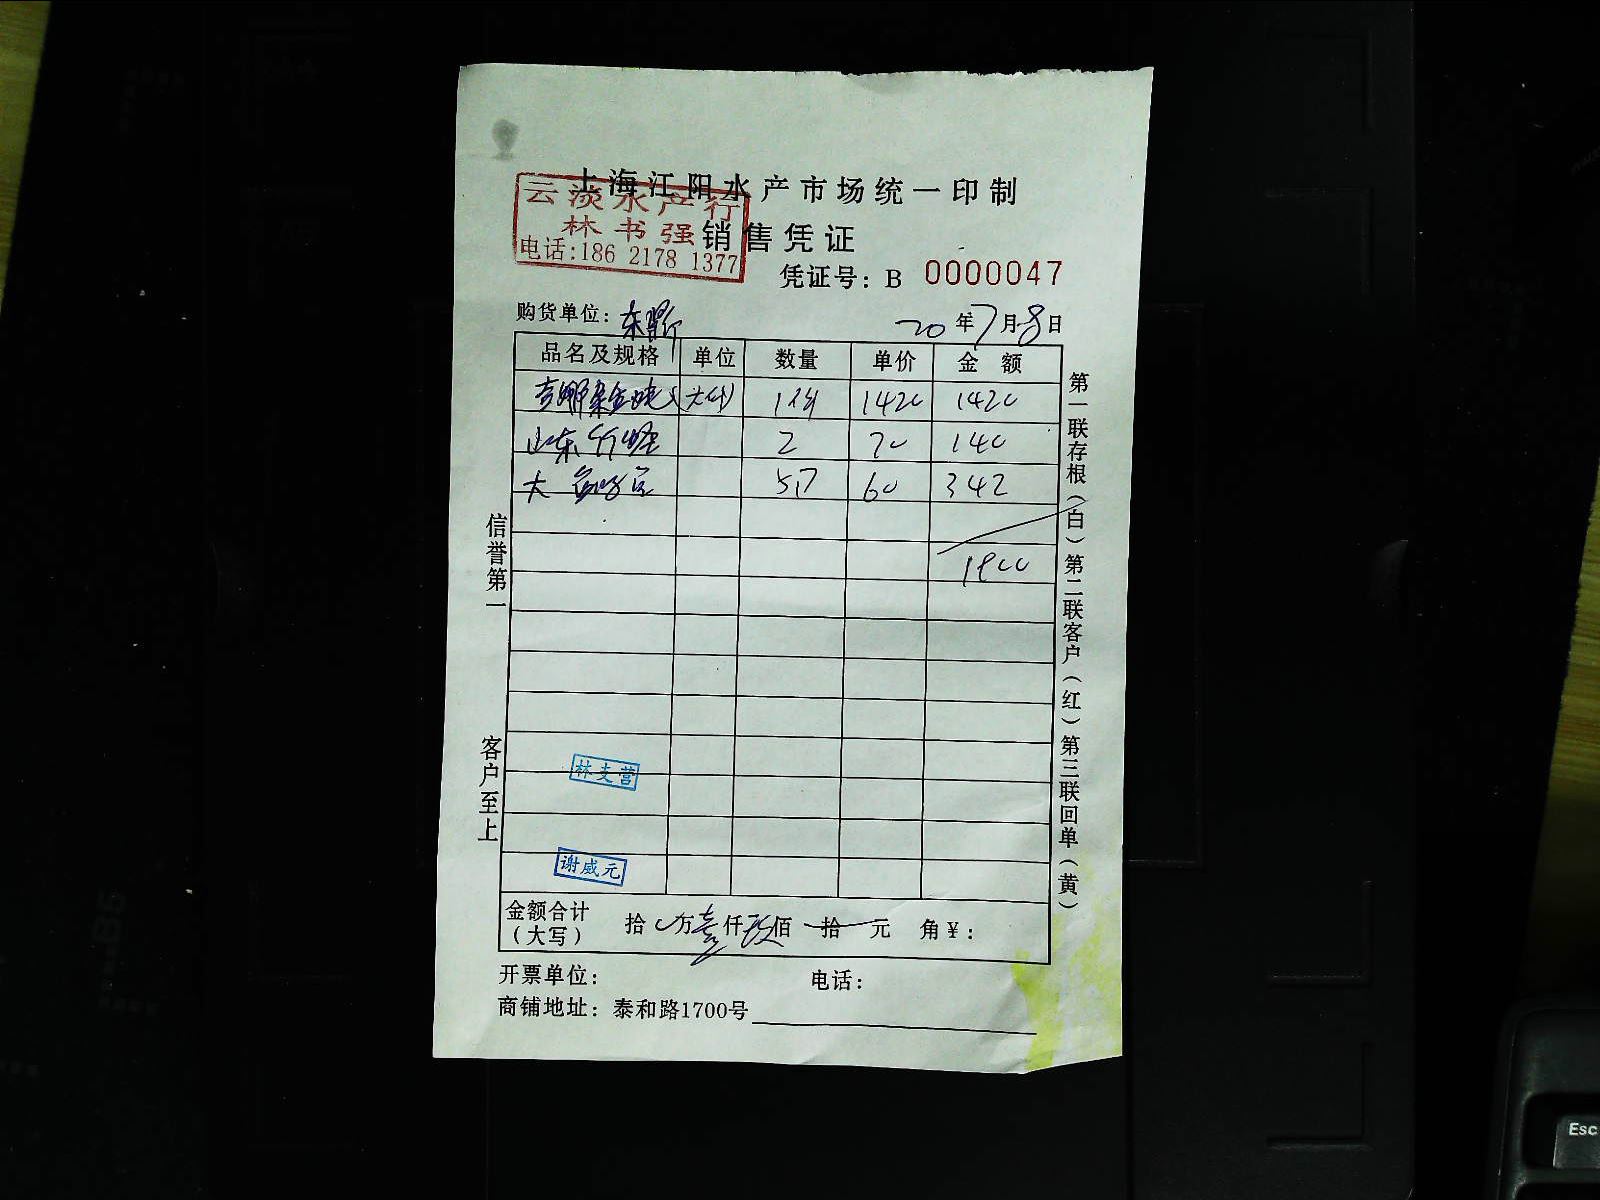 上海江阳水产市场统一印制
云淡水产行
林书强
电话:186 2178 1377
销售凭证
凭证号: B 0000047
购货单位: 东
20 年 7 月 8 日
品名及规格 单位 数量 单价 金额
1件 1420 1420
山东 2 70 140
大 5.7 60 342
1900
信誉第一
客户至上
第一联存根(白) 第二联客户(红) 第三联回单(黄)
林支营
谢威元
金额合计 (大写) 拾 万 壹 仟 玖 佰 拾 元 角 ¥:
开票单位: 电话:
商铺地址: 泰和路1700号
Esc